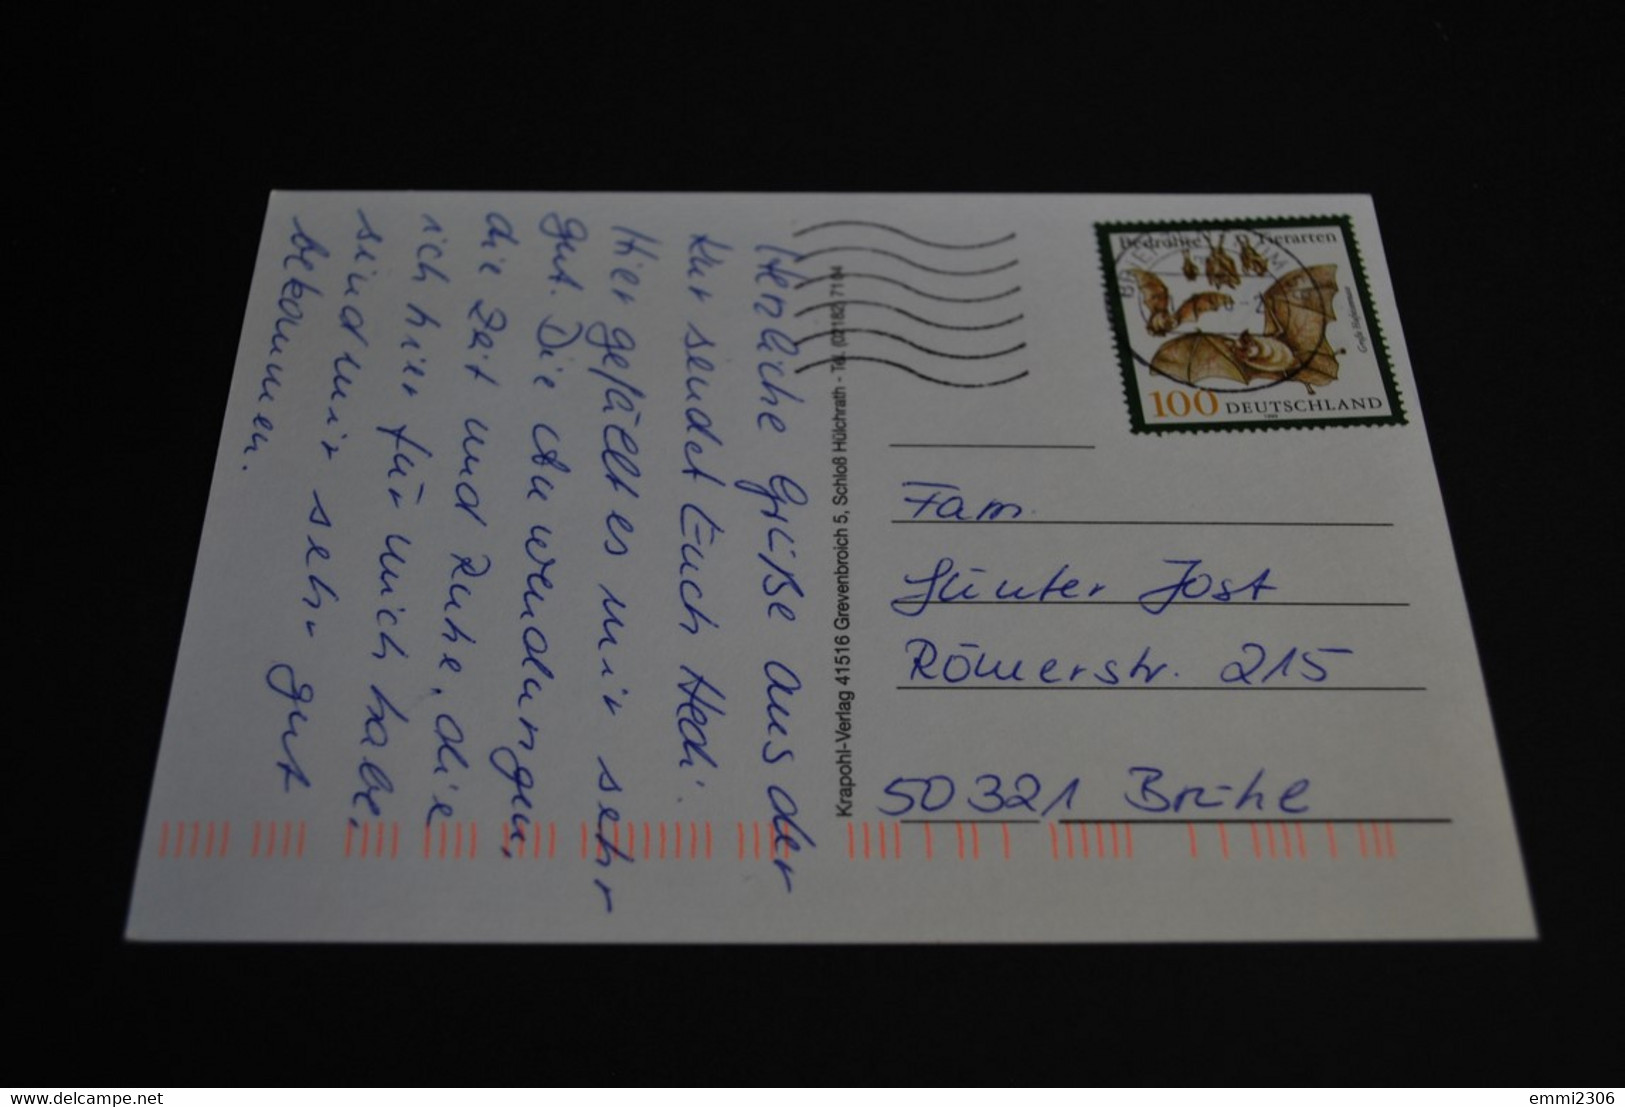 Herzliche Grüße aus der
Kur sendet Euch Hedi.
Hier gefällt es mir sehr
gut. Die Anwendungen,
die Zeit und Ruhe, die
ich hier für mich habe,
sind mir sehr gut
bekommen.
Krapohl-Verlag 41516 Grevenbroich 5, Schloß Hülchrath - Tel. (02182) 7104
Bedrohte Tierarten
Große Hufeisennase
100 DEUTSCHLAND
Fam.
Günter Jost
Römerstr. 215
50321 Brühl
delcampe.net
emmi2306